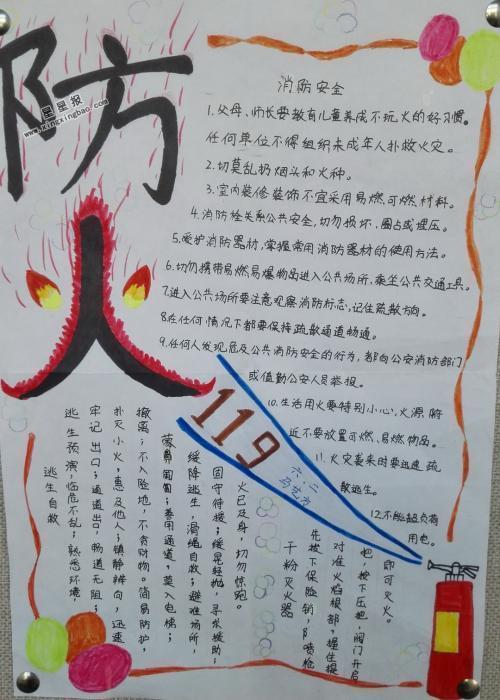 防
火
星星报
www.xingxingbao.com
消防安全
1.父母、师长要教育儿童养成不玩火的好习惯。
任何单位不得组织未成年人扑救火灾。
2.切莫乱扔烟头和火种。
3.室内装修装饰不宜采用易燃可燃材料。
4.消防栓关系公共安全,切勿损坏、圈占或埋压。
5.爱护消防器材,掌握常用消防器材的使用方法。
6.切勿携带易燃易爆物品进入公共场所、乘坐公共交通工具。
7.进入公共场所要注意观察消防标志,记住疏散方向。
8.在任何情况下都要保持疏散通道畅通。
9.任何人发现危及公共消防安全的行为,都向公安消防部门
或值勤公安人员举报。
10.生活用火要特别小心,火源附
近不要放置可燃、易燃物品。
11.火灾袭来时要迅速疏
散逃生。
12.不能超负荷
用电。
119
六.二
逃生自救
逃生预演,临危不乱;熟悉环境,
牢记出口;通道出口,畅通无阻;
扑灭小火,惠及他人;镇静辨向,迅速
撤离;不入险地,不贪财物。简易防护,
蒙鼻匍匐;善用通道,莫入电梯;
缓降逃生,滑绳自救;避难场所,
固守待援;缓晃轻抛,寻求援助;
火已及身,切勿惊跑。
干粉灭火器
先拔下保险销,喷枪
对准火焰根部,握住提
把,按下压把,阀门开启
即可灭火。